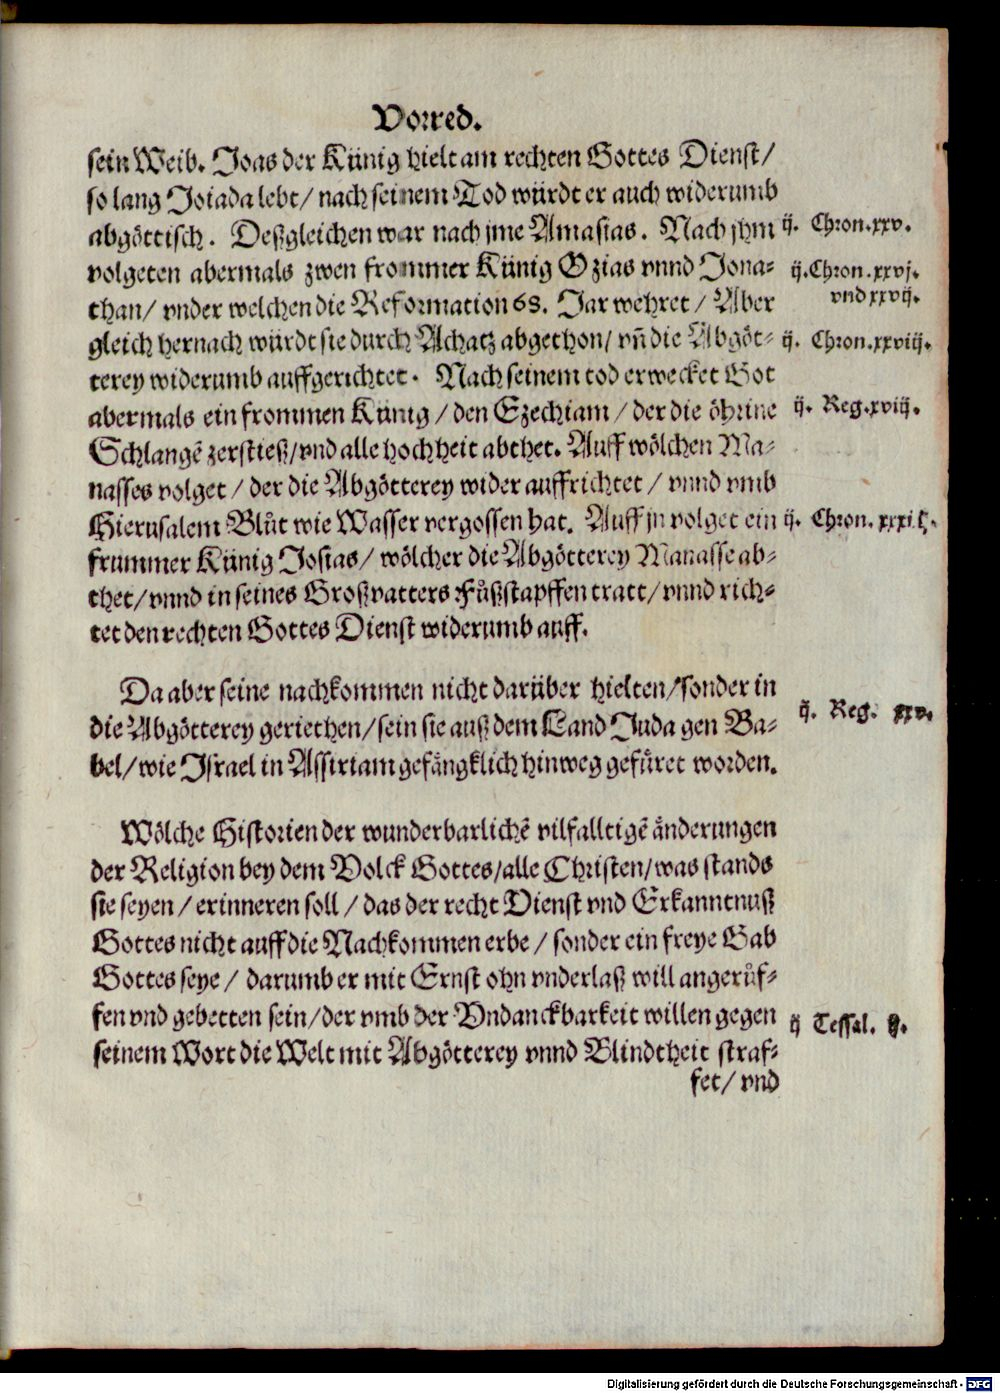 Vorred.
sein Weib. Joas der Künig hielt am rechten Gottes Dienst/
so lang Joiada lebt/ nach seinem Tod würdt er auch widerumb
abgöttisch. Deßgleichen war nach jme Amasias. Nach jhm
ij. Chron. xxv.
volgeten abermals zwen frommer Künig Ozias vnnd Jona-
ij. Chron. xxvj.
vnd xxvij.
than/ vnder welchen die Reformation 68. Jar wehret/ Aber
gleich hernach würdt sie durch Achatz abgethon/ vñ die Abgöt-
ij. Chron. xxviij.
terey widerumb auffgerichtet. Nach seinem tod erwecket Got
abermals ein frommen Künig/ den Ezechiam/ der die öhrine
ij. Reg. xviij.
Schlangẽ zerstieß/ vnd alle hochheit abthet. Auff wölchen Ma-
nasses volget/ der die Abgötterey wider auffrichtet/ vnnd vmb
Hierusalem Blůt wie Wasser vergossen hat. Auff jn volget ein
ij. Chron.
frummer Künig Josias/ wölcher die Abgötterey Manasse ab-
thet/ vnnd in seines Großvatters Fůßstapffen tratt/ vnnd rich-
tet den rechten Gottes Dienst widerumb auff.
Da aber seine nachkommen nicht darüber hielten/ sonder in
die Abgötterey geriethen/ sein sie auß dem Land Juda gen Ba-
ij. Reg. xxv.
bel/ wie Israel in Assiriam gefängklich hinweg gefüret worden.
Wölche Historien der wunderbarlichẽ vilfalltigẽ änderungen
der Religion bey dem Volck Gottes/ alle Christen/ was stands
sie seyen/ erinneren soll/ das der recht Dienst vnd Erkanntnuß
Gottes nicht auff die Nachkommen erbe/ sonder ein freye Gab
Gottes seye/ darumb er mit Ernst ohn vnderlaß will angerůf-
fen vnd gebetten sein/ der vmb der Vndanckbarkeit willen gegen
ij Tessal. ij.
seinem Wort die Welt mit Abgötterey vnnd Blindtheit straf-
fet/ vnd
Digitalisierung gefördert durch die Deutsche Forschungsgemeinschaft - DFG